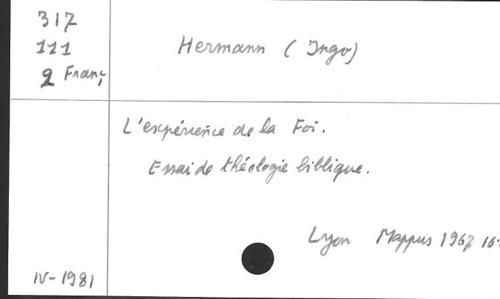 317
111
2 Franç
Hermann (Ingo)
L'expérience de la Foi.
Essai de théologie biblique.
Lyon Mappus 1967 16
IV-1981